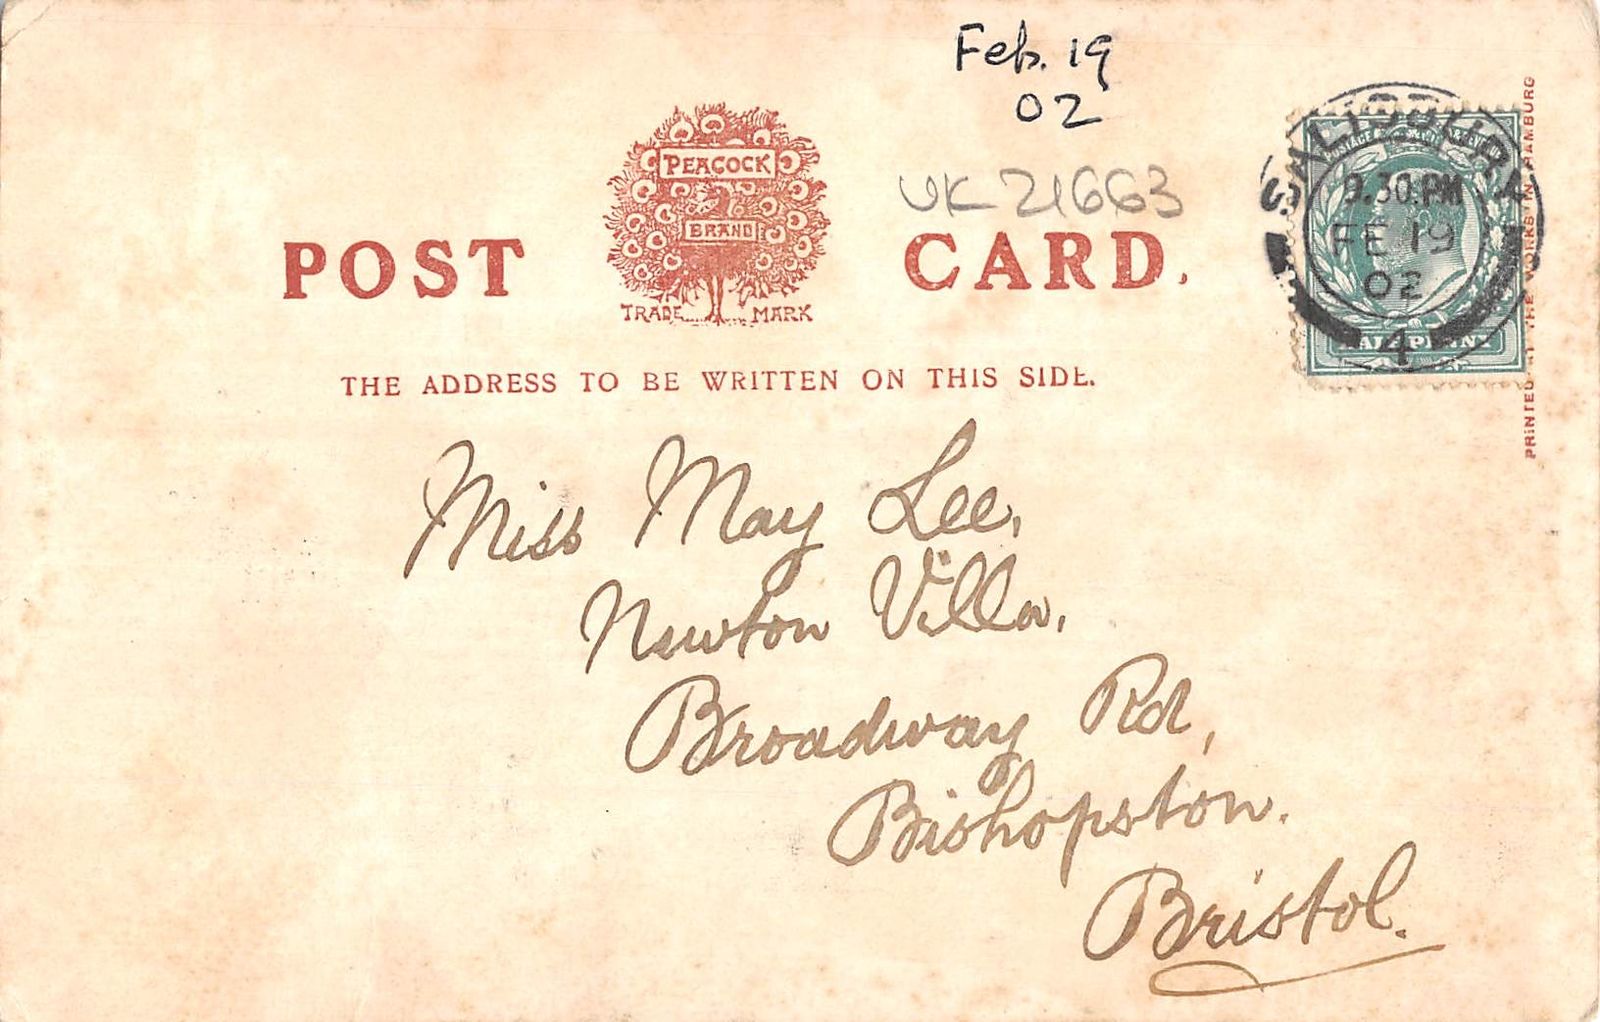 Feb. 19
02
UK 21663
PEACOCK
BRAND
POST CARD.
TRADE MARK
THE ADDRESS TO BE WRITTEN ON THIS SIDE.
SALISBURY
9.30.PM
FE 19
02
4
HALFPENNY
PRINTED AT THE WORKS IN HAMBURG
Miss May Lee,
Newton Villa,
Broadway Rd,
Bishopston.
Bristol.